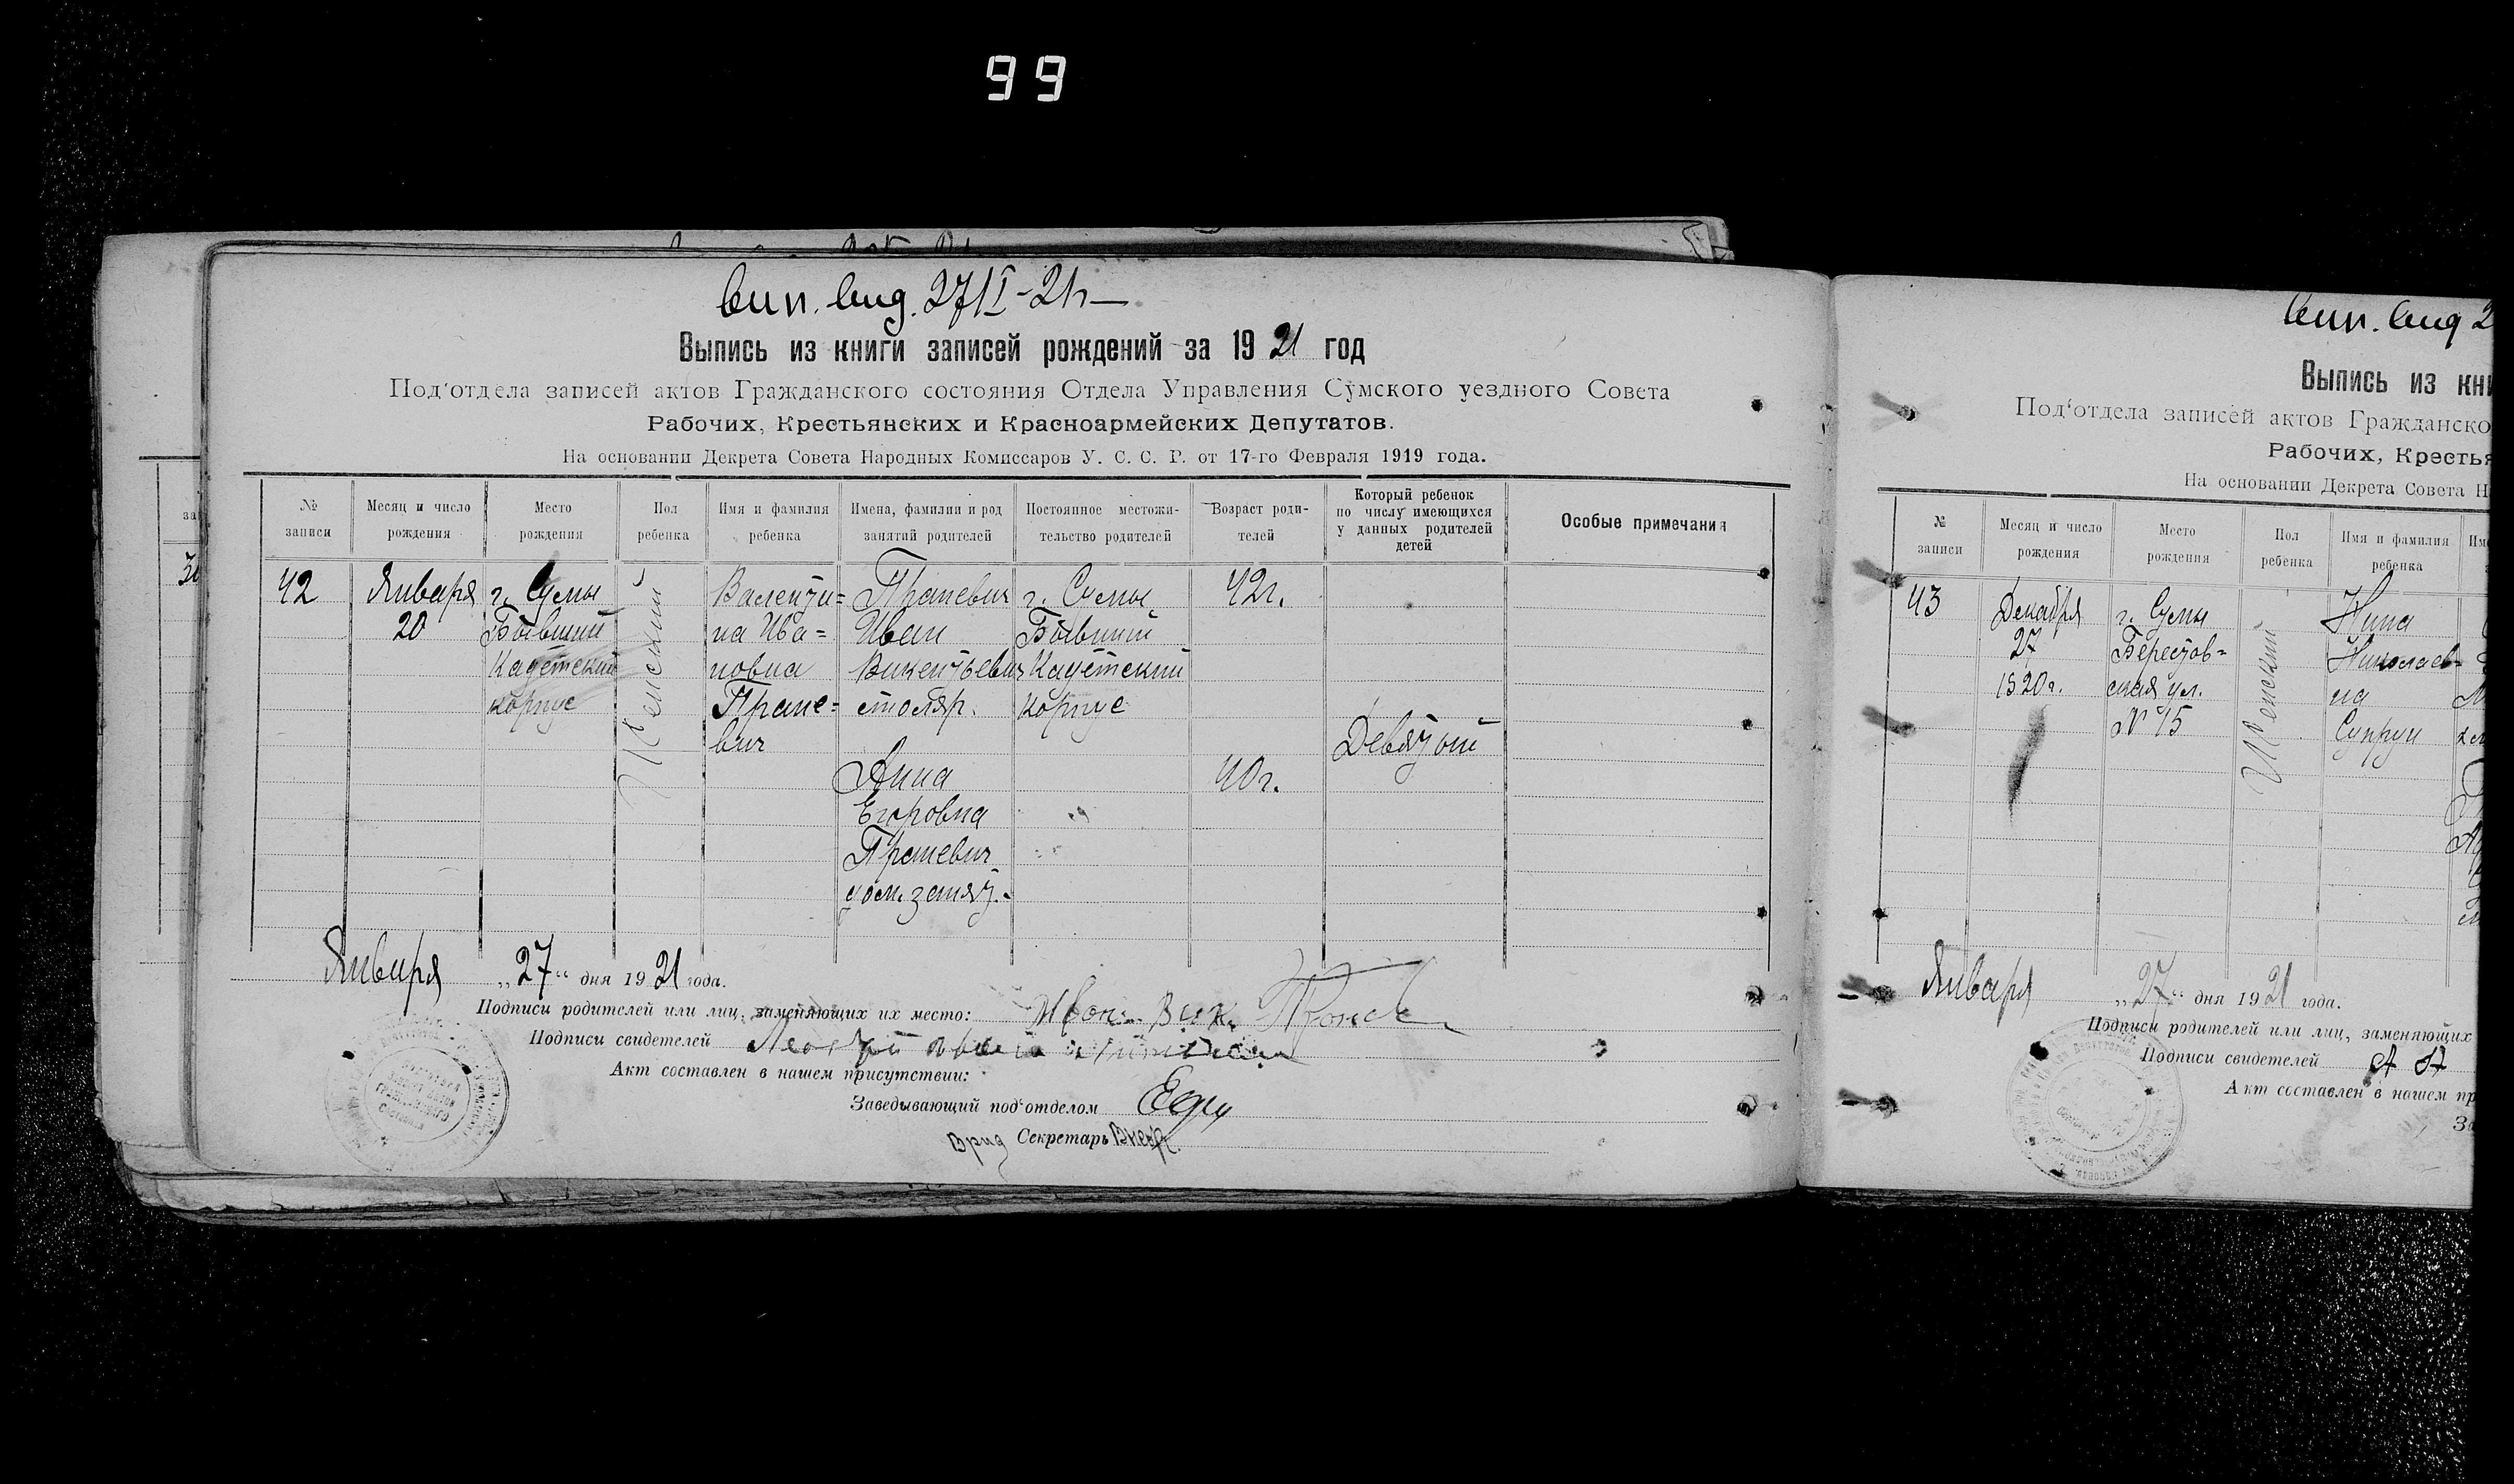 99
вип. вид. 27/I-21 г
Выпись из книги записей рождений за 1921 год
Под'отдела записей актов Гражданского состояния Отдела Управления Сумского уездного Совета
Рабочих, Крестьянских и Красноармейских Депутатов.
На основании Декрета Совета Народных Комиссаров У. С. С. Р. от 17-го Февраля 1919 года.
№ записи
Месяц и число рождения
Место рождения
Пол ребенка
Имя и фамилия ребенка
Имена, фамилии и род занятий родителей
Постоянное местожительство родителей
Возраст родителей
Который ребенок по числу имеющихся у данных родителей детей
Особые примечания
42
Января
20
г. Сумы
Бывший
Кадетский
корпус
Женский
Валенти=
на Ива=
новна
Пране=
вич
Праневич
Иван
Викентьевич
столяр.
Анна
Егоровна
Праневич
дом. занят.
г. Сумы
Бывший
Кадетский
корпус
42г.
40г.
Девятый
Января „27“ дня 1921 года.
Подписи родителей или лиц, заменяющих их место: Иван Вик.
Подписи свидетелей
Акт составлен в нашем присутствии:
Заведывающий под'отделом
Врид Секретарь
вип. вид 2
Выпись из кни
Под'отдела записей актов Гражданско
Рабочих, Крестья
На основании Декрета Совета Н
№ записи
Месяц и число рождения
Место рождения
Пол ребенка
Имя и фамилия ребенка
Им
43
Декабря
27
1920г.
г. Сумы
Берестов=
ская ул.
№ 15
Женский
Нина
Николаев=
на
Супрун
Января „27“ дня 1921 года.
Подписи родителей или лиц, заменяющих
Подписи свидетелей
Акт составлен в нашем пр
За